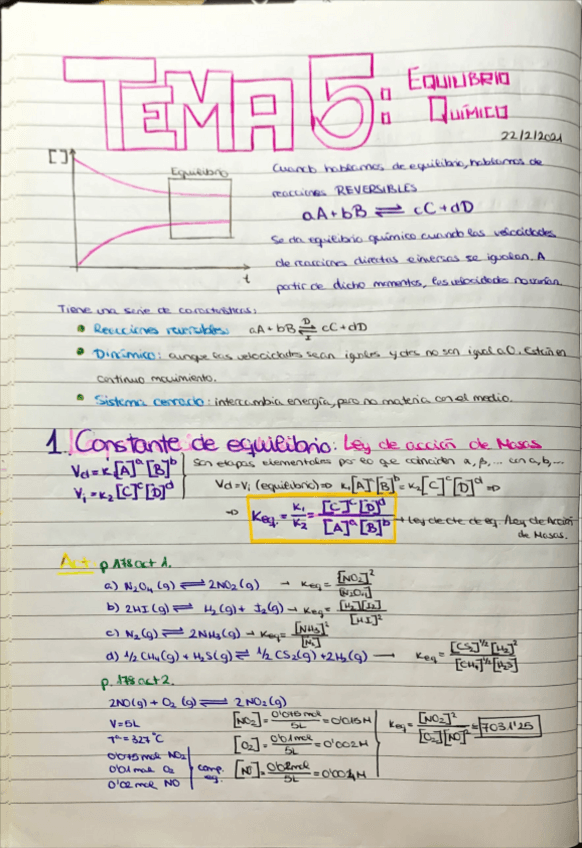 TEMA 5: EQUILIBRIO
QUÍMICO
22/2/2021
[ ]
Equilibrio
t
Cuando hablamos de equilibrio, hablamos de
reacciones REVERSIBLES
aA + bB ⇌ cC + dD
Se da equilibrio químico cuando las velocidades
de reacciones directas e inversas se igualan. A
partir de dicho momentos, las velocidades no varían.
Tiene una serie de características:
• Reacciones reversibles: aA + bB ⇌ cC + dD
D
I
• Dinámico: aunque las velocidades sean iguales y ctes no son igual a 0. Están en
continuo movimiento.
• Sistema cerrado: intercambia energía, pero no materia con el medio.
1. Constante de equilibrio: Ley de acción de Masas
Vd = K₁[A]ᵃ[B]ᵇ
Vi = K₂[C]ᶜ[D]ᵈ
Son etapas elementales por lo que coinciden α, β, ... con a, b, ...
Vd = Vi (equilibrio) ⇒ K₁[A]ᵃ[B]ᵇ = K₂[C]ᶜ[D]ᵈ ⇒
⇒ Keq. = K₁/K₂ = [C]ᶜ[D]ᵈ / [A]ᵃ[B]ᵇ → Ley de cte. de eq. / Ley de Acción
de Masas.
Act p.178 act 1.
a) N₂O₄ (g) ⇌ 2NO₂ (g) → Keq = [NO₂]² / [N₂O₄]
b) 2HI (g) ⇌ H₂ (g) + I₂ (g) → Keq = [H₂][I₂] / [HI]²
c) N₂ (g) ⇌ 2NH₃ (g) → Keq = [NH₃]² / [N₂]
d) 1/2 CH₄ (g) + H₂S (g) ⇌ 1/2 CS₂ (g) + 2H₂ (g) → Keq = [CS₂]^1/2 [H₂]² / [CH₄]^1/2 [H₂S]
p.178 act 2.
2NO (g) + O₂ (g) ⇌ 2NO₂ (g)
V = 5L
Tª = 327ºC
0'075 mol NO₂
0'01 mol O₂
0'02 mol NO
comp.
eq.
[NO₂] = 0'075 mol / 5L = 0'015M
[O₂] = 0'01 mol / 5L = 0'002M
[NO] = 0'02 mol / 5L = 0'004M
Keq = [NO₂]² / [O₂][NO]² = 7031'25